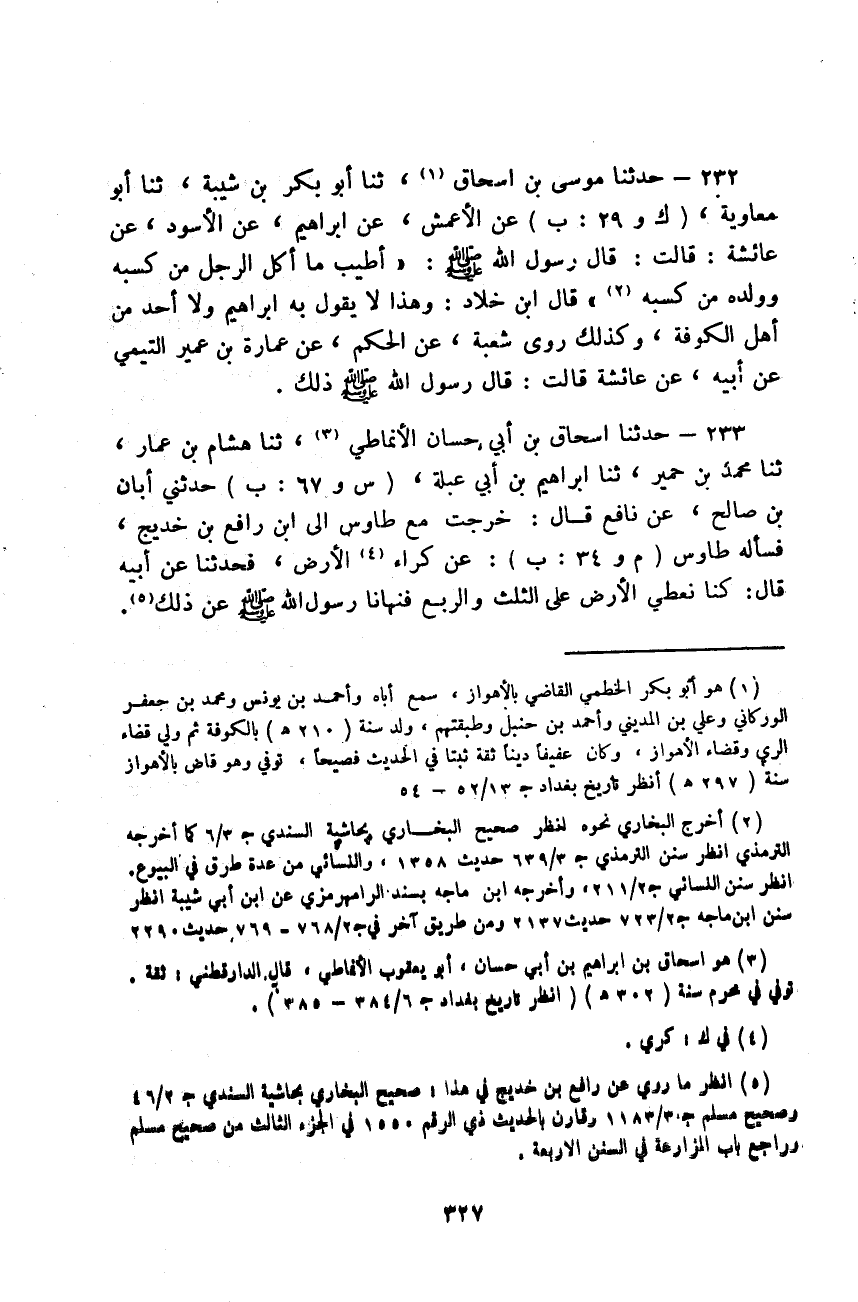 ٢٣٢ – حدثنا موسى بن اسحاق (١) ، ثنا أبو بكر بن شيبة ، ثنا أبو
معاوية ، ( ك و ٢٩ : ب ) عن الأعمش ، عن ابراهيم ، عن الأسود ، عن
عائشة : قالت : قال رسول الله ﷺ : « أطيب ما أكل الرجل من كسبه
وولده من كسبه (٢) » قال ابن خلاد : وهذا لا يقول به ابراهيم ولا أحد من
أهل الكوفة ، وكذلك روى شعبة ، عن الحكم ، عن عمارة بن عمير التيمي
عن أبيه ، عن عائشة قالت : قال رسول الله ﷺ ذلك .
٢٣٣ – حدثنا اسحاق بن أبي حسان الأنماطي (٣) ، ثنا هشام بن عمار ،
ثنا محمد بن حمير ، ثنا ابراهيم بن أبي عبلة ، ( س و ٦٧ : ب ) حدثني أبان
بن صالح ، عن نافع قال : خرجت مع طاوس الى ابن رافع بن خديج ،
فسأله طاوس ( م و ٣٤ : ب ) : عن كراء (٤) الأرض ، فحدثنا عن أبيه
قال: كنا نعطي الأرض على الثلث والربع فنهانا رسول الله ﷺ عن ذلك(٥).
(١) هو أبو بكر الخطمي القاضي بالأهواز ، سمع أباه وأحمد بن يونس ومحمد بن جعفر
الوركاني وعلي بن المديني وأحمد بن حنبل وطبقتهم ، ولد سنة ( ٢١٠ ه ) بالكوفة ثم ولي قضاء
الري وقضاء الأهواز ، وكان عفيفاً ديناً ثقة ثبتا في الحديث فصيحاً ، توفي وهو قاض بالأهواز
سنة ( ٢٩٧ ه ) أنظر تاريخ بغداد ج ٥٢/١٣ – ٥٤
(٢) أخرج البخاري نحوه انظر صحيح البخاري بحاشية السندي ج ٦/٣ كما أخرجه
الترمذي انظر سنن الترمذي ج ٦٣٩/٣ حديث ١٣٥٨ ، والنسائي من عدة طرق في البيوع.
انظر سنن النسائي ج٢١١/٢، وأخرجه ابن ماجه بسند الرامهرمزي عن ابن أبي شيبة انظر
سنن ابن ماجه ج٧٢٣/٢ حديث٢١٣٧ ومن طريق آخر في ج٧٦٨/٢ – ٧٦٩، حديث٢٢٩٠
(٣) هو اسحاق بن ابراهيم بن أبي حسان ، أبو يعقوب الأنماطي ، قال الدارقطني : ثقة .
توفي في محرم سنة ( ٣٠٢ ه ) ( انظر تاريخ بغداد ج ٣٨٤/٦ – ٣٨٥ ) .
(٤) في ك : كري .
(٥) انظر ما روي عن رافع بن خديج في هذا : صحيح البخاري بحاشية السندي ج ٤٦/٢
وصحيح مسلم ج ١١٨٣/٣ وقارن بالحديث ذي الرقم ١٥٥٠ في الجزء الثالث من صحيح مسلم
وراجع باب المزارعة في السنن الاربعة .
٣٢٧